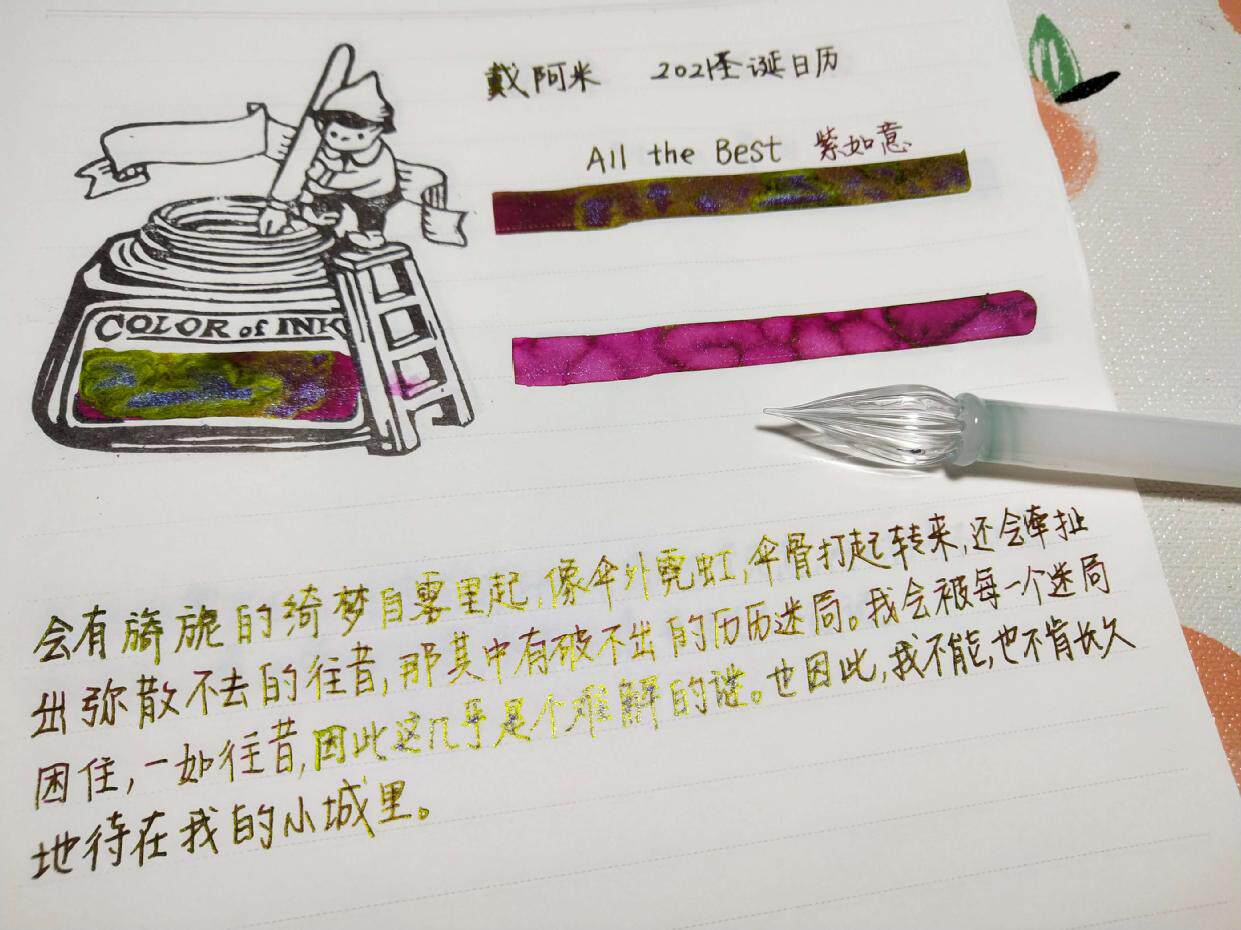 戴阿米 2021圣诞日历
All the Best 紫如意
COLOR of INK
会有旖旎的绮梦自雾里起,像伞外霓虹,伞骨打起转来,还会牵扯
出弥散不去的往昔,那其中有破不出的历历迷局。我会被每一个迷局
困住,一如往昔,因此这几乎是个难解的谜。也因此,我不能,也不肯长久
地待在我的小城里。